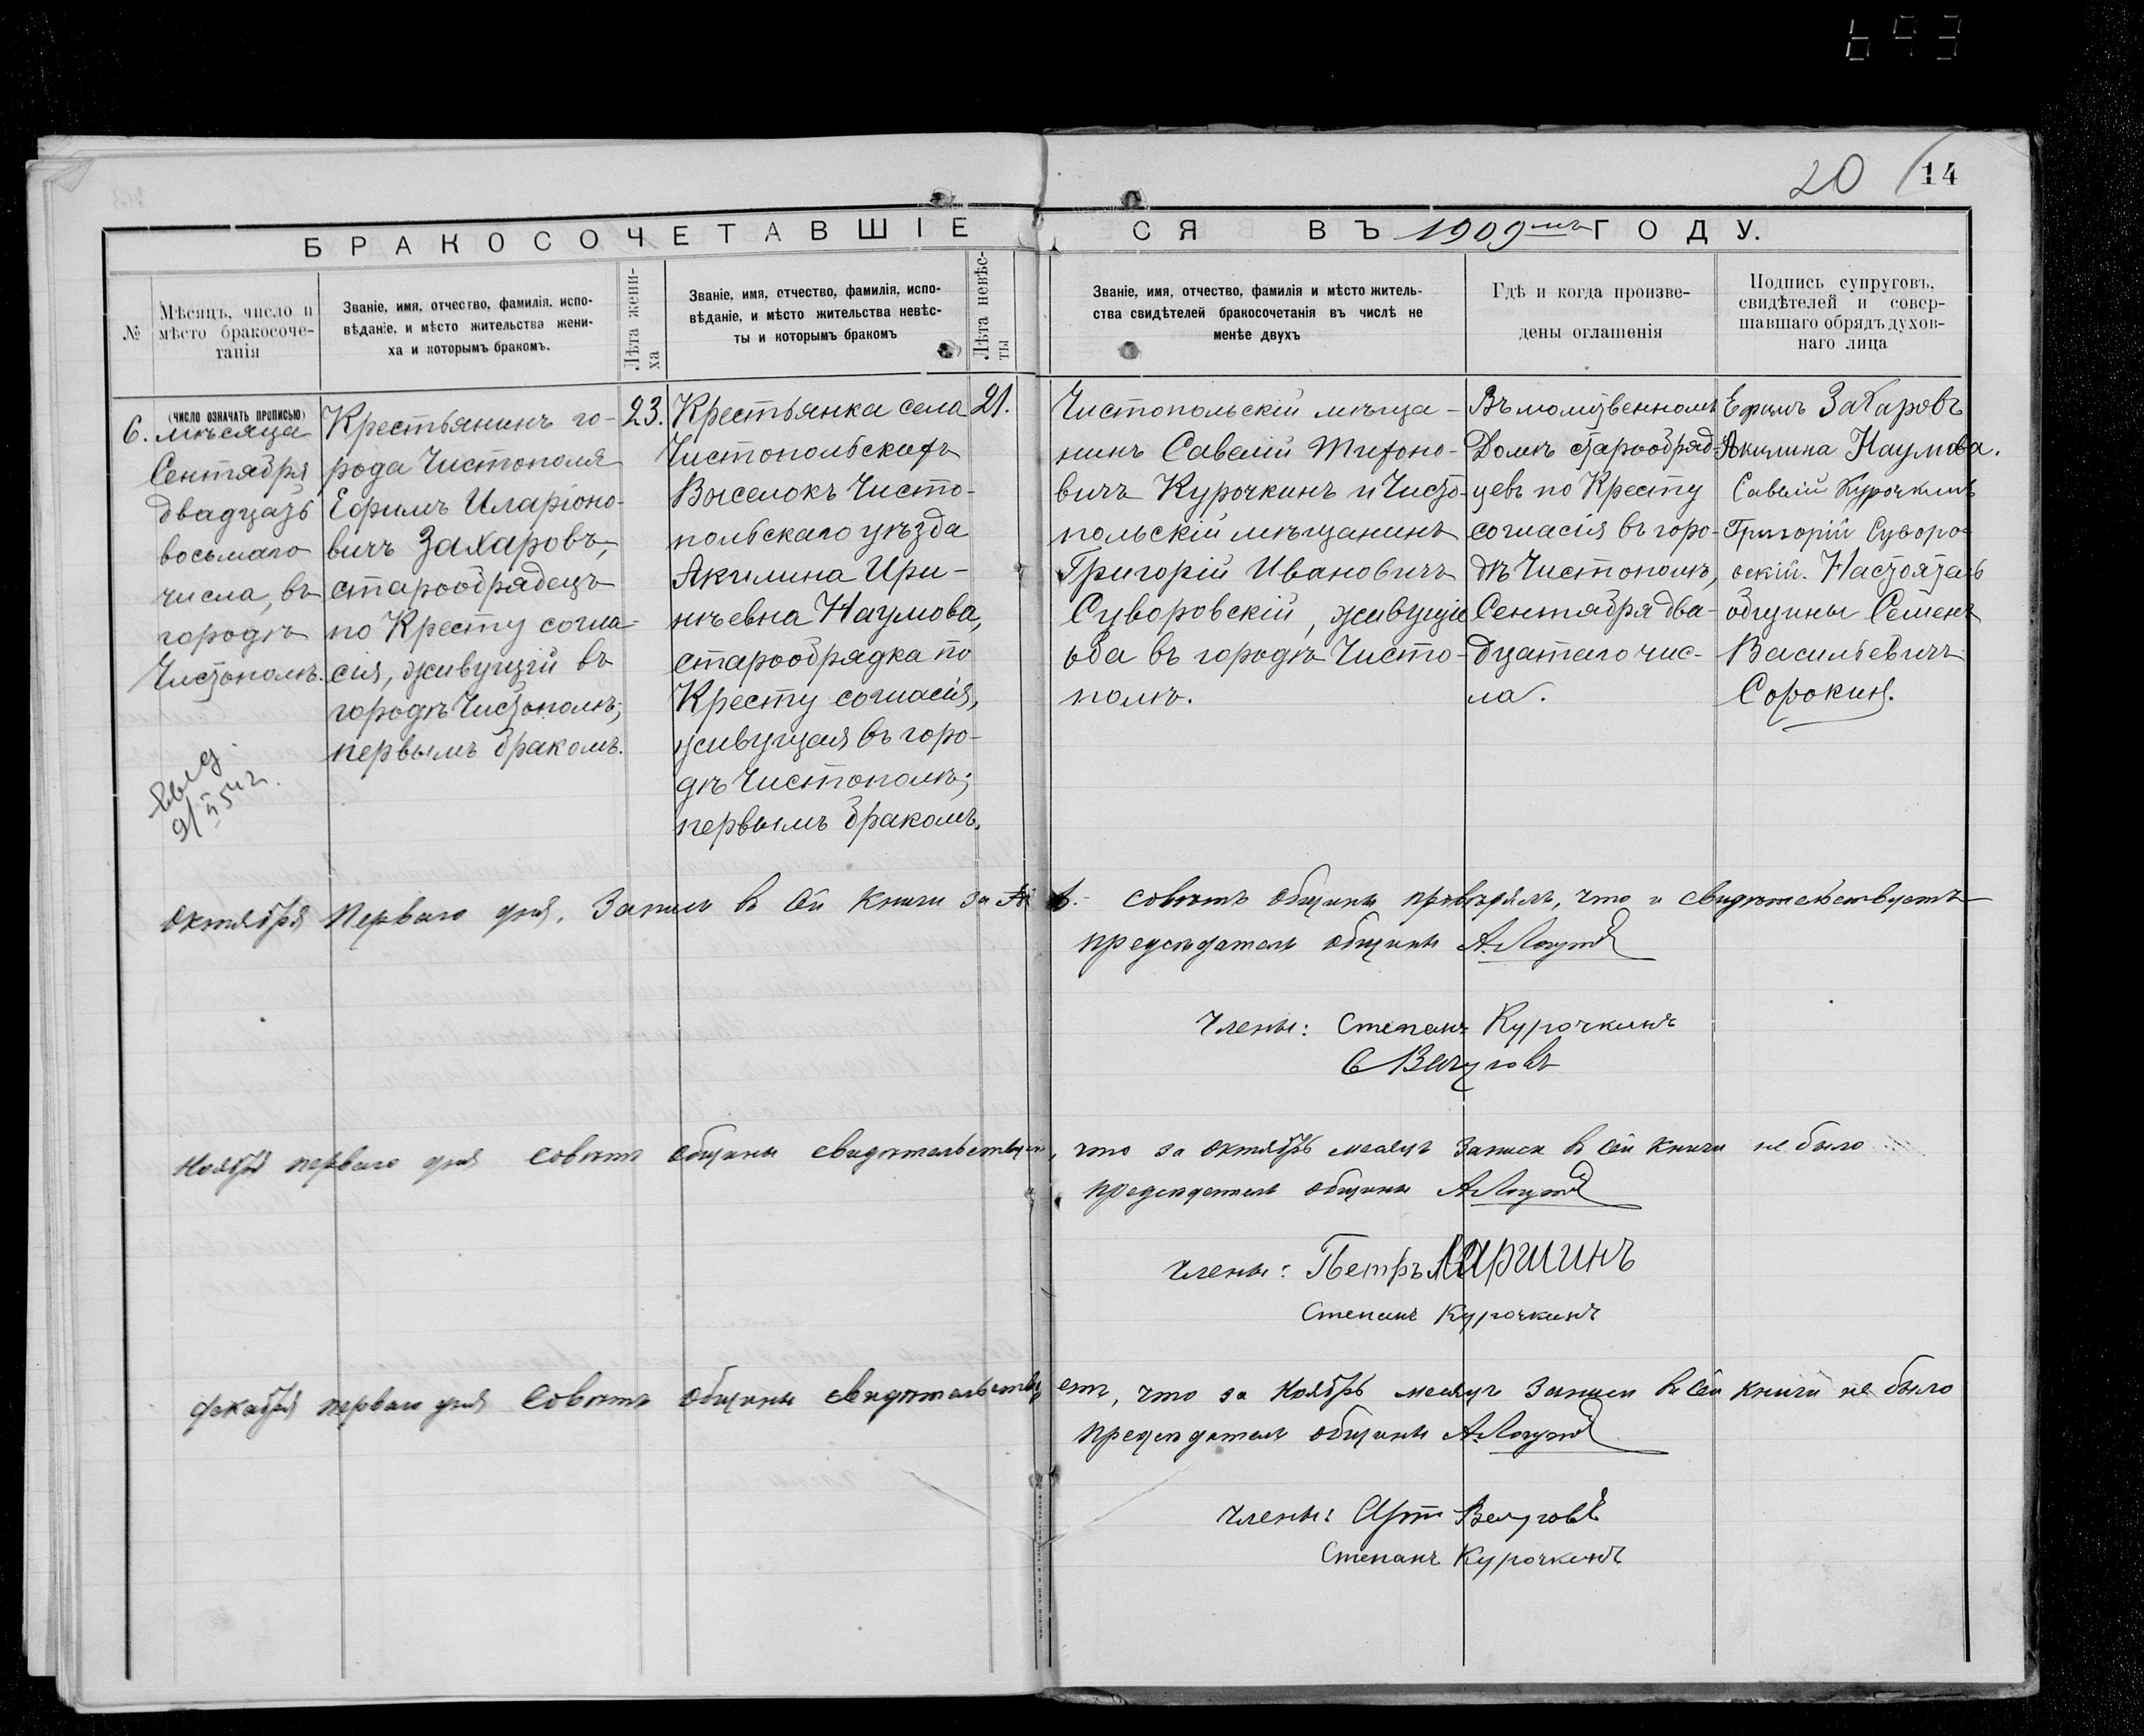 693
20 14
БРАКОСОЧЕТАВШІЕ
СЯ ВЪ 1909мъ ГОДУ.
№
Мѣсяцъ, число и
мѣсто бракосоче-
танія
Званіе, имя, отчество, фамилія, испо-
вѣданіе, и мѣсто жительства жени-
ха и которымъ бракомъ.
Лѣта жени-
ха
Званіе, имя, отчество, фамилія, испо-
вѣданіе, и мѣсто жительства невѣс-
ты и которымъ бракомъ
Лѣта невѣс-
ты
Званіе, имя, отчество, фамилія и мѣсто житель-
ства свидѣтелей бракосочетанія въ числѣ не
менѣе двухъ
Гдѣ и когда произве-
дены оглашенія
Подпись супруговъ,
свидѣтелей и совер-
шавшаго обрядъ духов-
наго лица
(ЧИСЛО ОЗНАЧАТЬ ПРОПИСЬЮ)
6. мѣсяца
Сентября
двадцать
восьмаго
числа, въ
городѣ
Чистополѣ.
Крестьянинъ го-
рода Чистополя
Ефимъ Иларіоно-
вичъ Захаровъ,
старообрядецъ
по Кресту согла-
сія, живущій въ
городѣ Чистополѣ;
первымъ бракомъ.
23.
Крестьянка села
Чистопольскихъ
Выселокъ Чисто-
польскаго уѣзда
Акилина Ири-
нѣевна Наумова,
старообрядка по
Кресту согласія,
живущая въ горо-
дѣ Чистополѣ;
первымъ бракомъ.
21.
Чистопольскій мѣща-
нинъ Савелій Тифоно-
вичъ Курочкинъ и Чисто-
польскій мѣщанинъ
Григорій Ивановичъ
Суворовскій, живущіе
оба въ городѣ Чисто-
полѣ.
Въ молитвенномъ
Домѣ старообряд-
цевъ по Кресту
согласія въ горо-
дѣ Чистополѣ,
Сентября два-
дцатаго чис-
ла.
Ефимъ Захаровъ
Акилина Наумова.
Савелій Курочкинъ
Григорій Суворо-
вскій. Настоятель
общины Семенъ
Васильевичъ
Сорокинъ.
Октября Перваго дня, Запись в сей книги за № 6. совѣтъ общины провѣрялъ, что и свидѣтельствуетъ
председатель общины
Члены: Степанъ Курочкинъ
Ноября перваго дня совѣтъ общины свидѣтельствует, что за Октябрь месяцъ записи в сей книги не было
председатель общины
Члены: Петръ Ларшинъ
Степанъ Курочкинъ
Декабря перваго дня Совѣтъ общины свидѣтельствуетъ, что за Ноябрь месяцъ Записи в сей книги не было
председатель общины
Члены:
Степанъ Курочкинъ